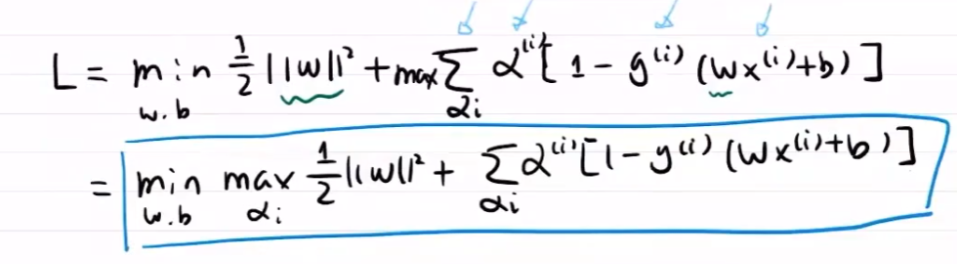 L = min w.b 1/2 ||w||² + max Σ αi α⁽ⁱ⁾[1 - y⁽ⁱ⁾ (wx⁽ⁱ⁾+b)]
= min w.b max αi 1/2 ||w||² + Σ αi α⁽ⁱ⁾[1 - y⁽ⁱ⁾ (wx⁽ⁱ⁾+b)]